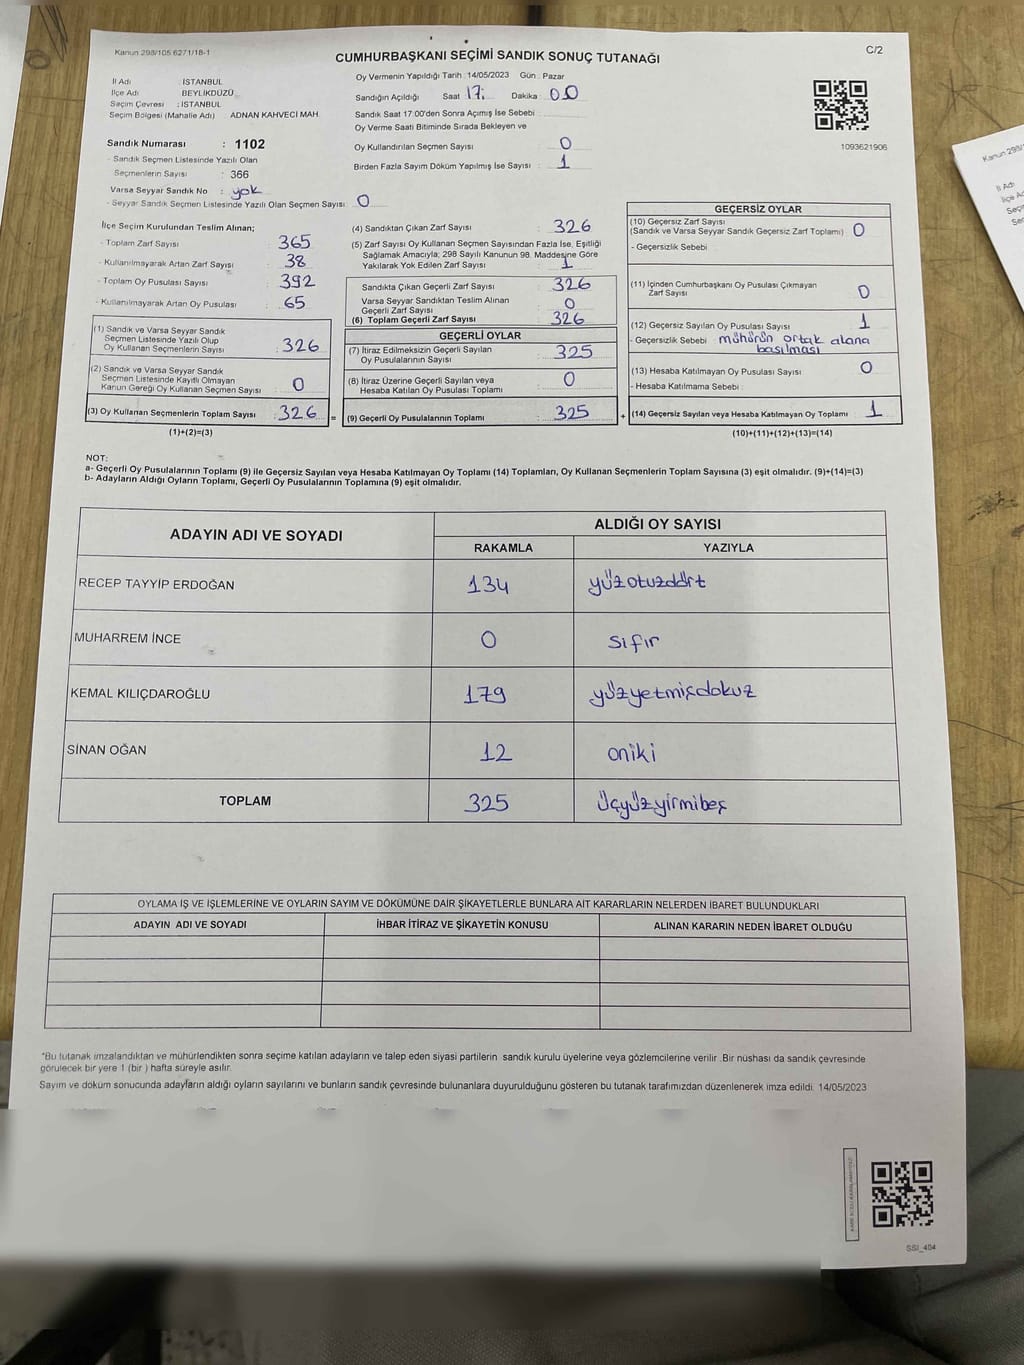 Kanun 298/105 6271/18-1
CUMHURBAŞKANI SEÇİMİ SANDIK SONUÇ TUTANAĞI
C/2
İl Adı : İSTANBUL
İlçe Adı : BEYLİKDÜZÜ
Seçim Çevresi : İSTANBUL
Seçim Bölgesi (Mahalle Adı) : ADNAN KAHVECİ MAH.
Oy Vermenin Yapıldığı Tarih : 14/05/2023 Gün : Pazar
Sandığın Açıldığı Saat 17: Dakika : 00
Sandık Saat 17:00'den Sonra Açımış İse Sebebi :
Oy Verme Saati Bitiminde Sırada Bekleyen ve
Oy Kullandırılan Seçmen Sayısı : 0
Birden Fazla Sayım Döküm Yapılmış İse Sayısı : 1
1093621906
Sandık Numarası : 1102
- Sandık Seçmen Listesinde Yazılı Olan
Seçmenlerin Sayısı : 366
Varsa Seyyar Sandık No : yok
- Seyyar Sandık Seçmen Listesinde Yazılı Olan Seçmen Sayısı: 0
İlçe Seçim Kurulundan Teslim Alınan;
- Toplam Zarf Sayısı : 365
- Kullanılmayarak Artan Zarf Sayısı : 38
- Toplam Oy Pusulası Sayısı : 392
- Kullanılmayarak Artan Oy Pusulası : 65
(1) Sandık ve Varsa Seyyar Sandık
Seçmen Listesinde Yazılı Olup
Oy Kullanan Seçmenlerin Sayısı : 326
(2) Sandık ve Varsa Seyyar Sandık
Seçmen Listesinde Kayıtlı Olmayan
Kanun Gereği Oy Kullanan Seçmen Sayısı : 0
(3) Oy Kullanan Seçmenlerin Toplam Sayısı : 326 =
(1)+(2)=(3)
(4) Sandıktan Çıkan Zarf Sayısı : 326
(5) Zarf Sayısı Oy Kullanan Seçmen Sayısından Fazla İse, Eşitliği
Sağlamak Amacıyla; 298 Sayılı Kanunun 98. Maddesine Göre
Yakılarak Yok Edilen Zarf Sayısı : 1
Sandıkta Çıkan Geçerli Zarf Sayısı : 326
Varsa Seyyar Sandıktan Teslim Alınan
Geçerli Zarf Sayısı : 0
(6) Toplam Geçerli Zarf Sayısı : 326
GEÇERLİ OYLAR
(7) İtiraz Edilmeksizin Geçerli Sayılan
Oy Pusulalarının Sayısı : 325
(8) İtiraz Üzerine Geçerli Sayılan veya
Hesaba Katılan Oy Pusulası Toplamı : 0
(9) Geçerli Oy Pusulalarının Toplamı : 325 +
GEÇERSİZ OYLAR
(10) Geçersiz Zarf Sayısı
(Sandık ve Varsa Seyyar Sandık Geçersiz Zarf Toplamı) : 0
- Geçersizlik Sebebi :
(11) İçinden Cumhurbaşkanı Oy Pusulası Çıkmayan
Zarf Sayısı : 0
(12) Geçersiz Sayılan Oy Pusulası Sayısı : 1
- Geçersizlik Sebebi : mühürün ortak alana
basılması
(13) Hesaba Katılmayan Oy Pusulası Sayısı : 0
- Hesaba Katılmama Sebebi :
(14) Geçersiz Sayılan veya Hesaba Katılmayan Oy Toplamı : 1
(10)+(11)+(12)+(13)=(14)
NOT:
a- Geçerli Oy Pusulalarının Toplamı (9) ile Geçersiz Sayılan veya Hesaba Katılmayan Oy Toplamı (14) Toplamları, Oy Kullanan Seçmenlerin Toplam Sayısına (3) eşit olmalıdır. (9)+(14)=(3)
b- Adayların Aldığı Oyların Toplamı, Geçerli Oy Pusulalarının Toplamına (9) eşit olmalıdır.
ADAYIN ADI VE SOYADI
ALDIĞI OY SAYISI
RAKAMLA YAZIYLA
RECEP TAYYİP ERDOĞAN 134 yüzotuzdört
MUHARREM İNCE 0 sıfır
KEMAL KILIÇDAROĞLU 179 yüzyetmişdokuz
SİNAN OĞAN 12 oniki
TOPLAM 325 üçyüzyirmibeş
OYLAMA İŞ VE İŞLEMLERİNE VE OYLARIN SAYIM VE DÖKÜMÜNE DAİR ŞİKAYETLERLE BUNLARA AİT KARARLARIN NELERDEN İBARET BULUNDUKLARI
ADAYIN ADI VE SOYADI İHBAR İTİRAZ VE ŞİKAYETİN KONUSU ALINAN KARARIN NEDEN İBARET OLDUĞU
*Bu tutanak imzalandıktan ve mühürlendikten sonra seçime katılan adayların ve talep eden siyasi partilerin sandık kurulu üyelerine veya gözlemcilerine verilir .Bir nüshası da sandık çevresinde
görülecek bir yere 1 (bir ) hafta süreyle asılır.
Sayım ve döküm sonucunda adayların aldığı oyların sayılarını ve bunların sandık çevresinde bulunanlara duyurulduğunu gösteren bu tutanak tarafımızdan düzenlenerek imza edildi. 14/05/2023
SSI_404
Kanun 298/
İl Adı